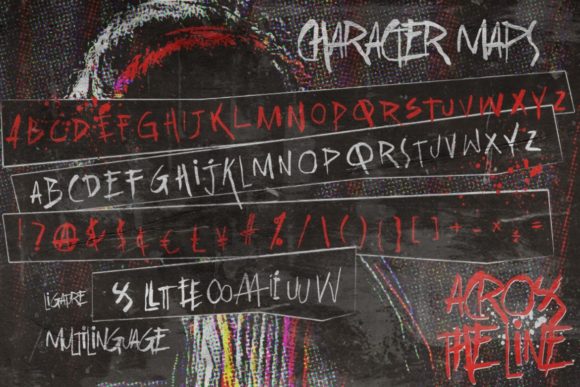 CHARACTER MAPS
ABCDEFGHIJKLMNOPQRSTUVWXYZ
ABCDEFGHIJKLMNOPQRSTUVWXYZ
!?@&$¢€£¥#%/\(){}[]+-×÷=
LIGATRE SS LL TT EE OO AA II UU VV
MULTILINGUAGE
ACROSS
THE LINE